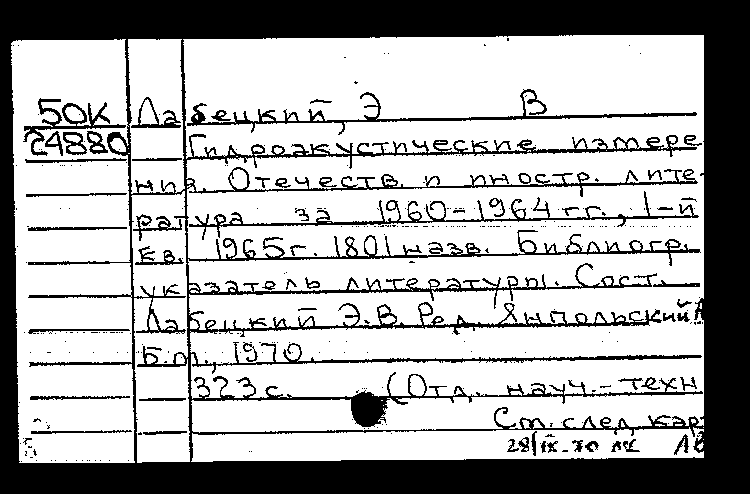 50К Лабецкий, Э В
24880 Гидроакустические измере
ния. Отечеств. и иностр. лите-
ратура за 1960-1964 гг., I-й
кв. 1965г. 1801 назв. Библиогр.
указатель литературы. Сост.
Лабецкий Э.В. Ред. Ямпольский А
Б.м., 1970.
323с. (Отд. науч.-техн
См. след. кар
28/IX-70 АВ